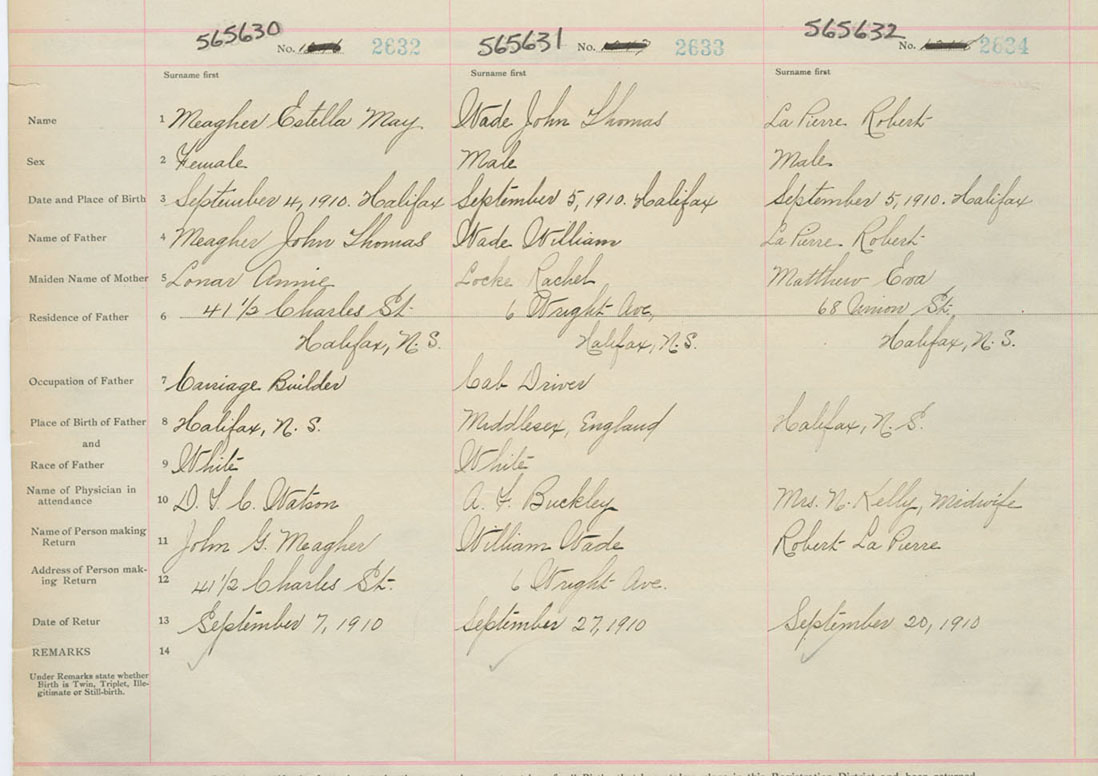 565630 565631 565632
No. 2632 No. 2633 No. 2634
Surname first Surname first Surname first
Name 1 Meagher Estella May Wade John Thomas La Pierre Robert
Sex 2 Female Male Male
Date and Place of Birth 3 September 4, 1910. Halifax September 5, 1910. Halifax September 5, 1910. Halifax
Name of Father 4 Meagher John Thomas Wade William La Pierre Robert
Maiden Name of Mother 5 Lonar Annie Locke Rachel Matthew Eva
Residence of Father 6 41 1/2 Charles St. 6 Wright Ave, 68 Union St,
Halifax, N.S. Halifax, N.S. Halifax, N.S.
Occupation of Father 7 Carriage Builder Cab Driver
Place of Birth of Father 8 Halifax, N.S. Middlesex, England Halifax, N.S.
and
Race of Father 9 White White
Name of Physician in
attendance 10 A. F. Buckley Mrs. N. Kelly, Midwife
Name of Person making
Return 11 John G. Meagher William Wade Robert La Pierre
Address of Person mak-
ing Return 12 41 1/2 Charles St. 6 Wright Ave.
Date of Retur 13 September 7, 1910 September 27, 1910 September 20, 1910
REMARKS 14
Under Remarks state whether
Birth is Twin, Triplet, Ille-
gitimate or Still-birth.